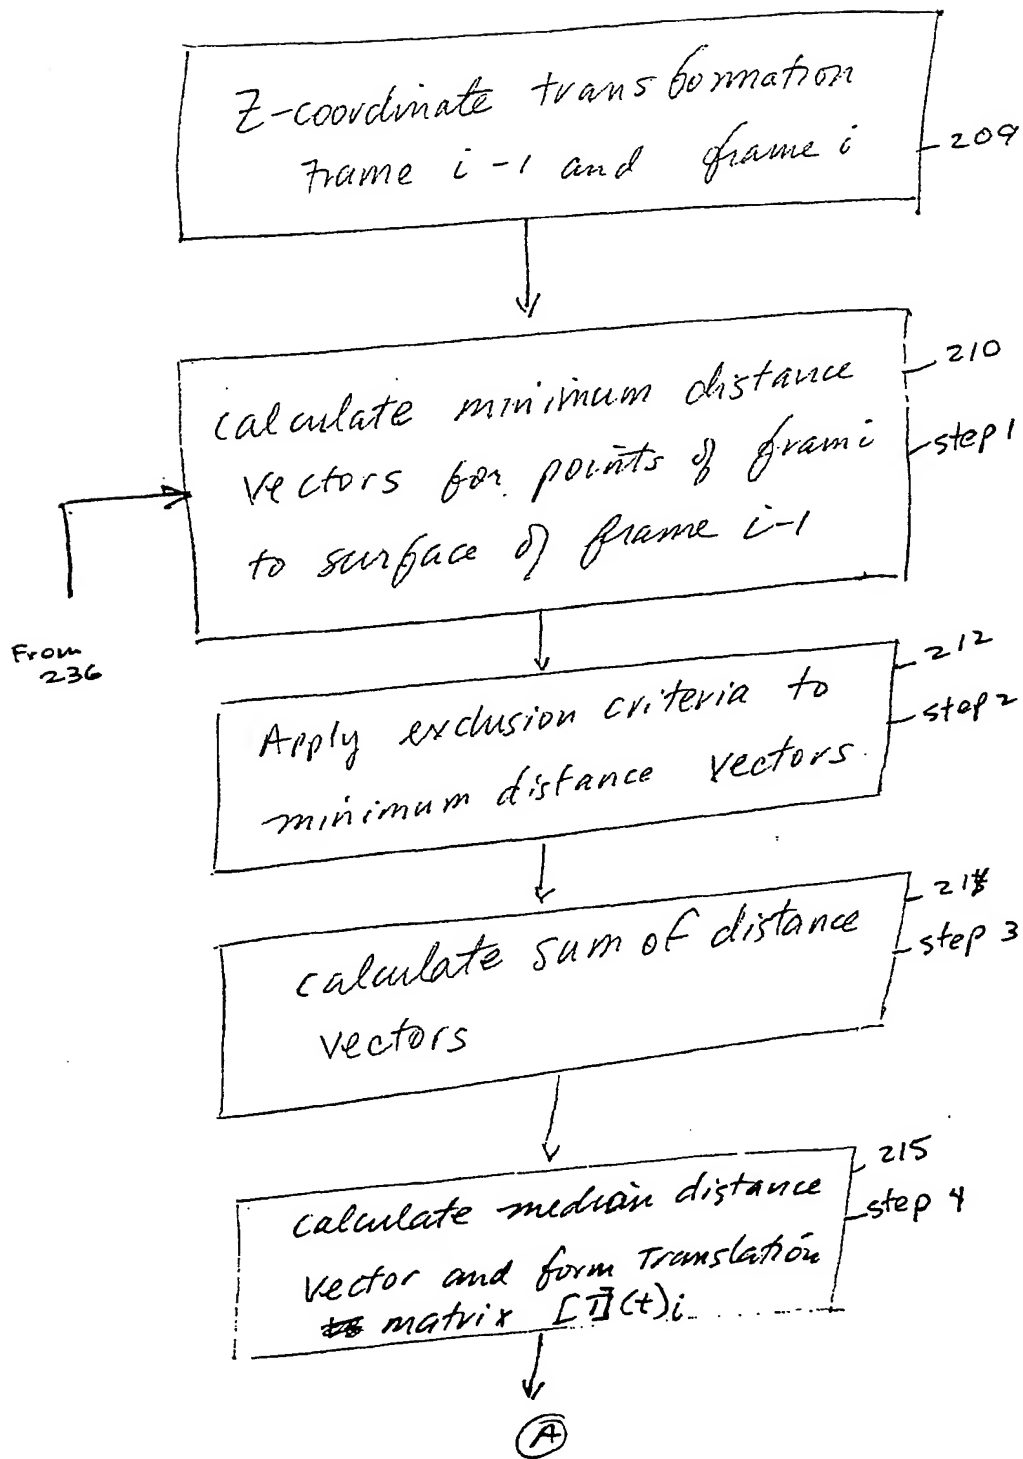 Z-coordinate transformation
Frame i-1 and frame i
209
210
calculate minimum distance
vectors for points of frami
to surface of frame i-1
step 1
From
236
212
Apply exclusion criteria to
minimum distance vectors.
step 2
calculate sum of distance
vectors
step 3
215
calculate median distance
vector and form Translation
matrix [T](t)i
step 4
A